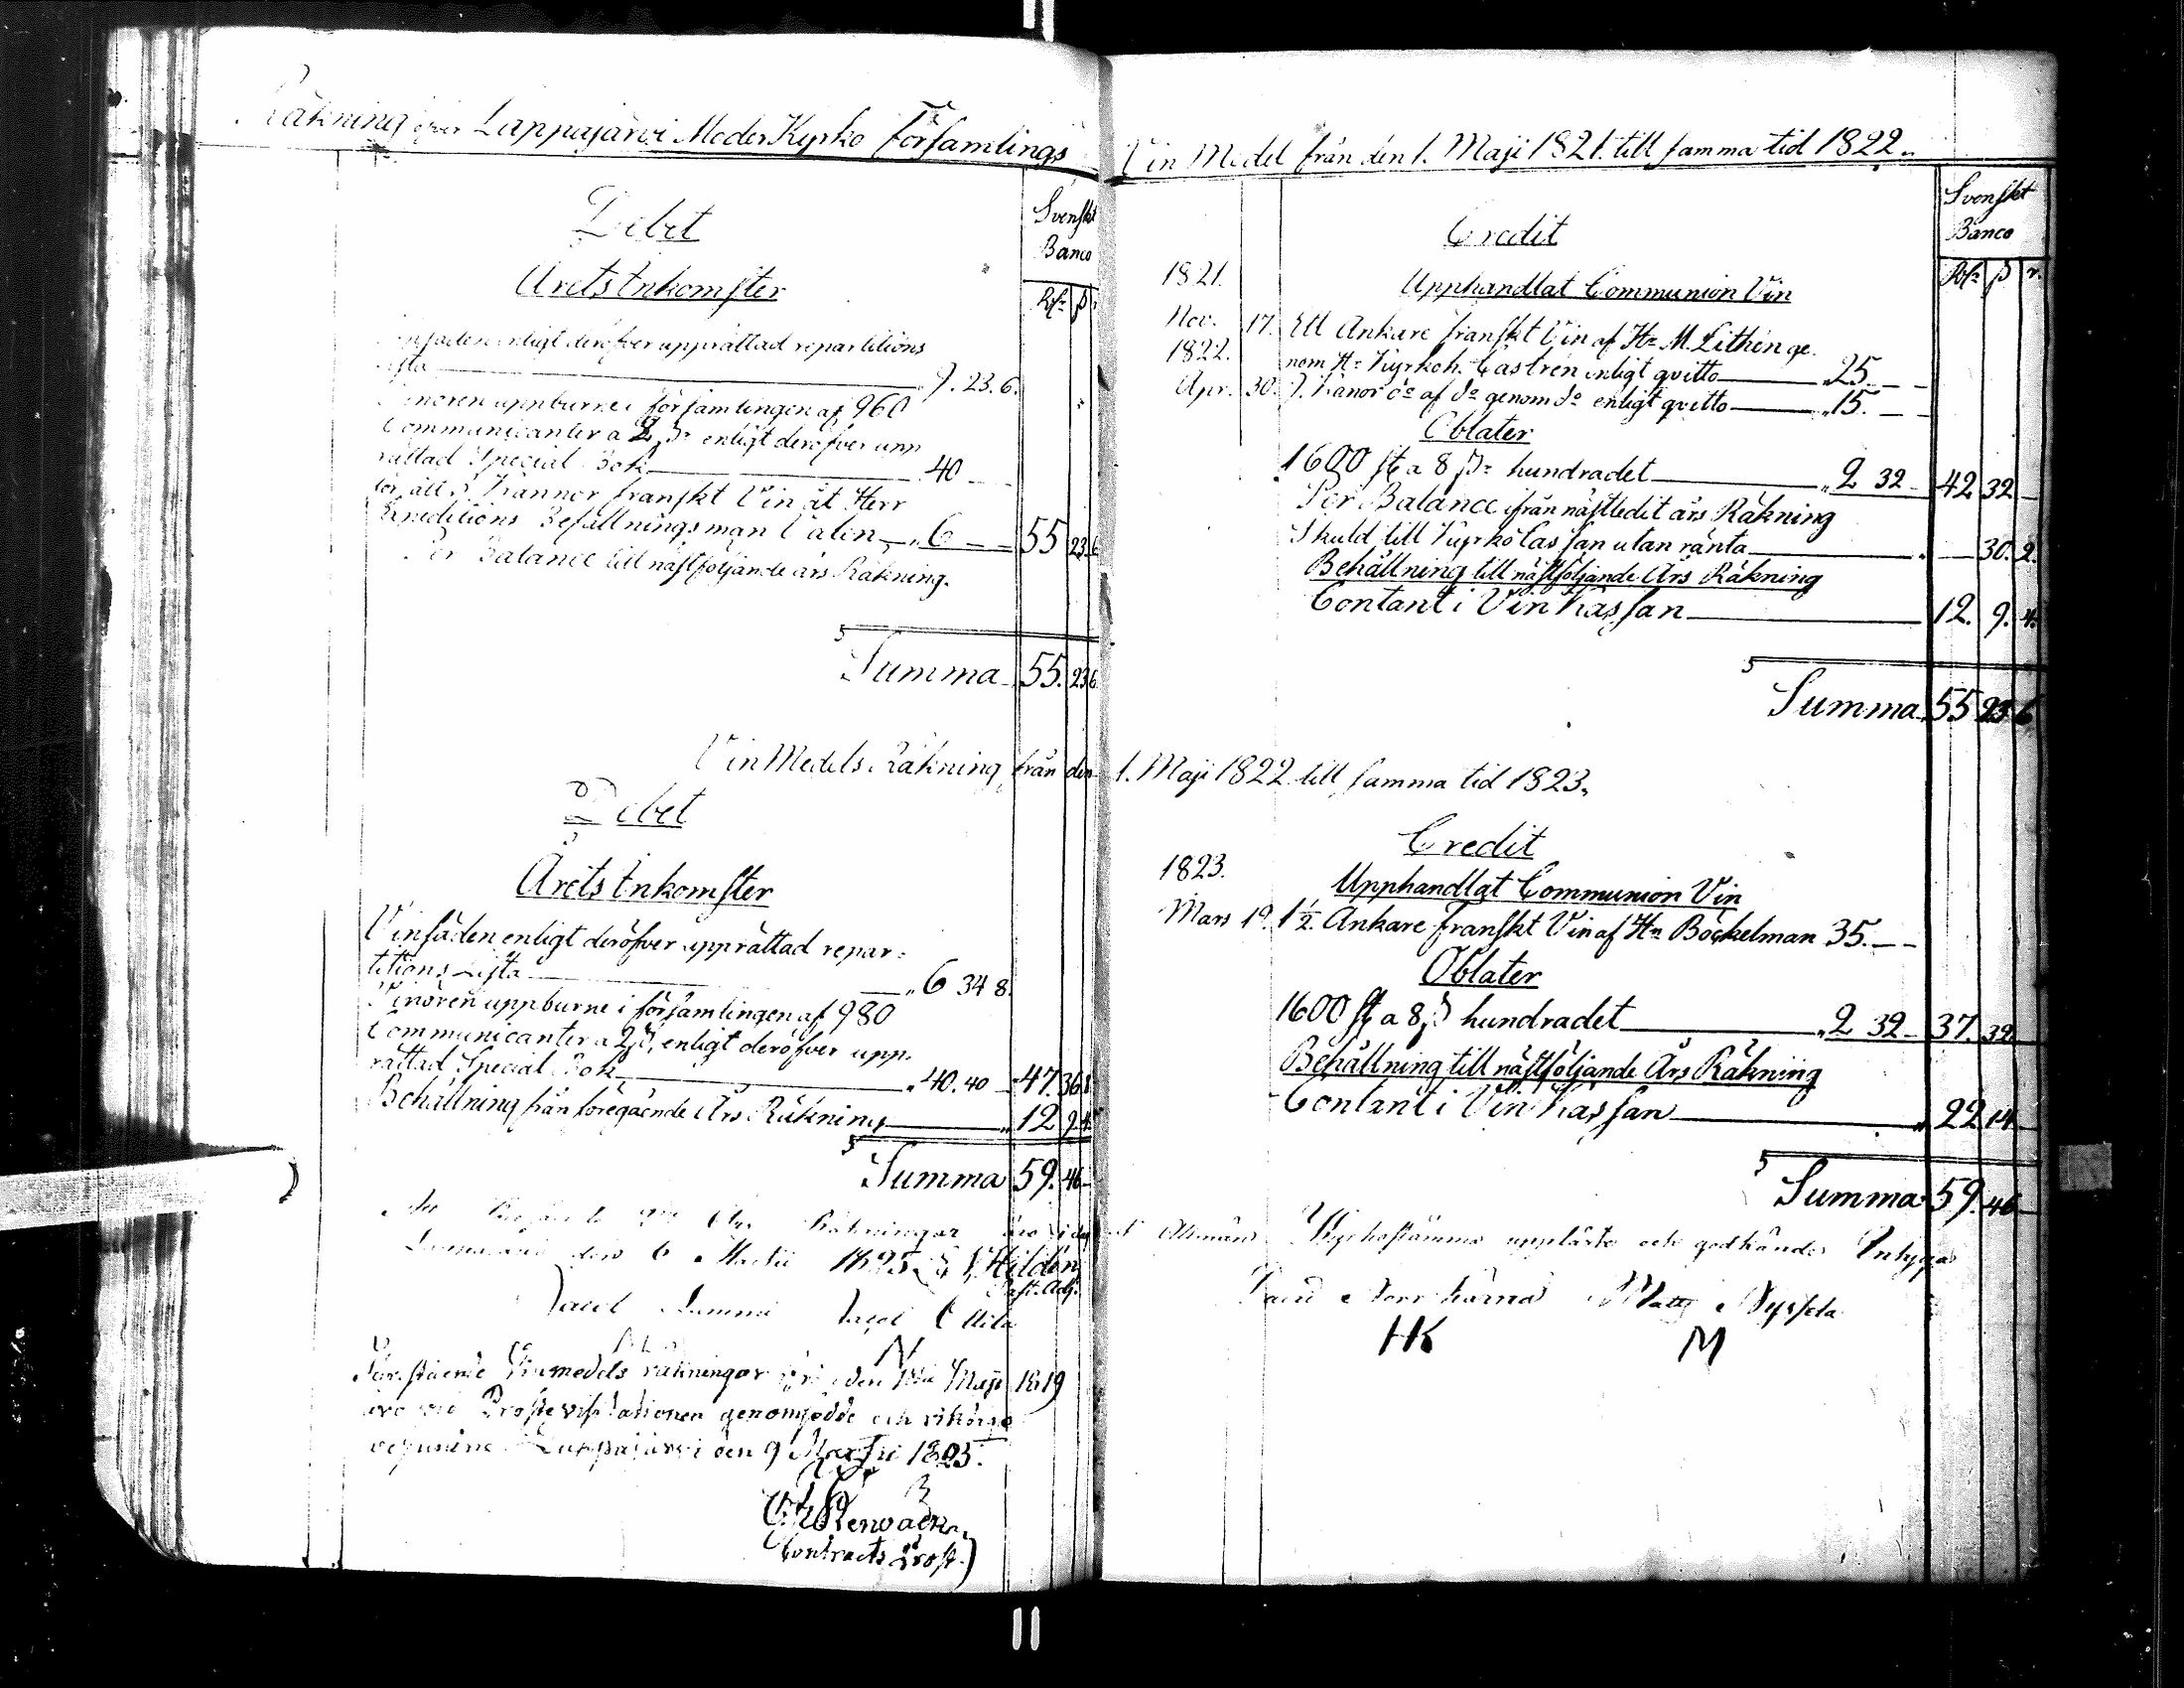 Räkning öfver Lappajärvi Moder Kyrko Församlings
Debet
Svenskt
Banco
Årets Inkomster
Rdr ß r
enligt deröfver upprättad repartitions
Lista 9. 23. 6.
Vinören uppburne i församlingen af 960
Communicanter a 2 ß enligt deröfver upp
rättad Special Bok 40
för ått 3 Kannor franskt Vin åt Herr
Expeditions Befallningsman Calen 6 55 23 6
Per Balance till nästföljande års Räkning.
Summa 55. 23 6
Vin Medels Räkning från den
Debet
Årets Inkomster
Vinsäden enligt deröfver upprättad repar=
titions Lista 6 34 8.
Vinören uppburne i församlingen af 980
Communicanter a 2 ß, enligt deröfver upp
rättad Special Bok 40. 40 47. 36 8
Behållning från föregående Års Räkning 12 9. 4.
Summa 59. 46
Räkningar äro i dag
den 6 Martii 1825 Hildén
Past. Adj.
Jacob Lammi Jacob
N
Förestående Vinmedels räkningar från den 1sta Maji 1819
äro vid Prostevisitationen genomsedde och riktige
befunne. Lappajärvi den 9 Martii 1825.
Contracts Prost.
Vin Medel från den 1. Maji 1821. till samma tid 1822.
Svenskt
Banco
Credit
Rdr ß r.
1821. Upphandlat Communion Vin
Nov. 17. Ett Ankare franskt Vin af Hr M. Lithén ge
1822. nom Hr Kyrkoh. Castrén enligt qvitto 25.
Apr. 30. 9. Kanor do af do genom do enligt qvitto 15.
Oblater
1600 st a 8 ß hundradet 2 32 42 32
Per Balance ifrån nästledit års Räkning
Skuld till Kyrko Cassan utan ränta 30. 2.
Behållning till nästföljande Års Räkning
Contant i Vin Kassan 12. 9. 4.
Summa 55 23 6
1. Maji 1822 till samma tid 1823.
Credit
1823. Upphandlat Communion Vin
Mars 19. 1 1/2. Ankare franskt Vin af Hr Böckelman 35.
Oblater
1600 st a 8 ß hundradet 2 32 37. 32
Behållning till nästföljande Års Räkning
Contant i Vin Kassan 22 14
Summa 59. 46
Allmän Kyrkostämma uppläste och godkände Intyga
Matts
HK M